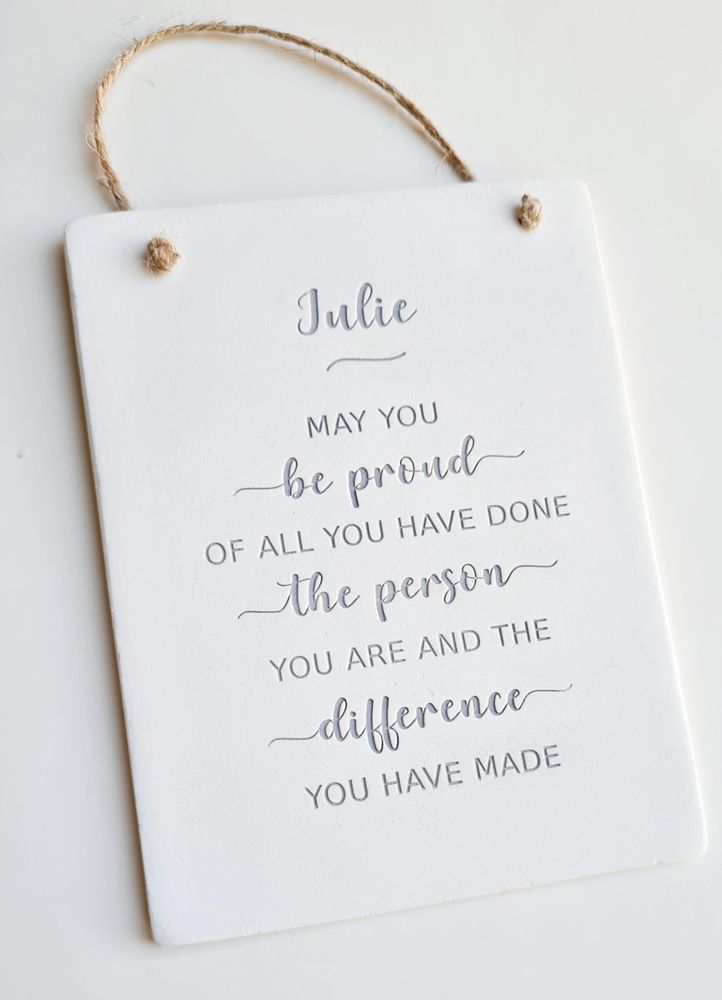 Julie
MAY YOU
be proud
OF ALL YOU HAVE DONE
the person
YOU ARE AND THE
difference
YOU HAVE MADE